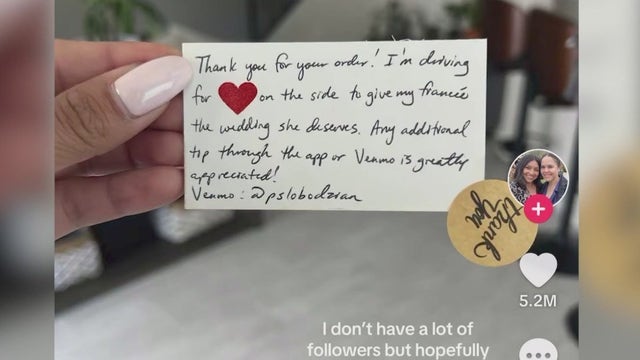 Thank you for your order! I'm driving
for ❤ on the side to give my fiancée
the wedding she deserves. Any additional
tip through the app or Venmo is greatly
appreciated!
Venmo: @pslobodzian
thank
you
5.2M
I don't have a lot of
followers but hopefully